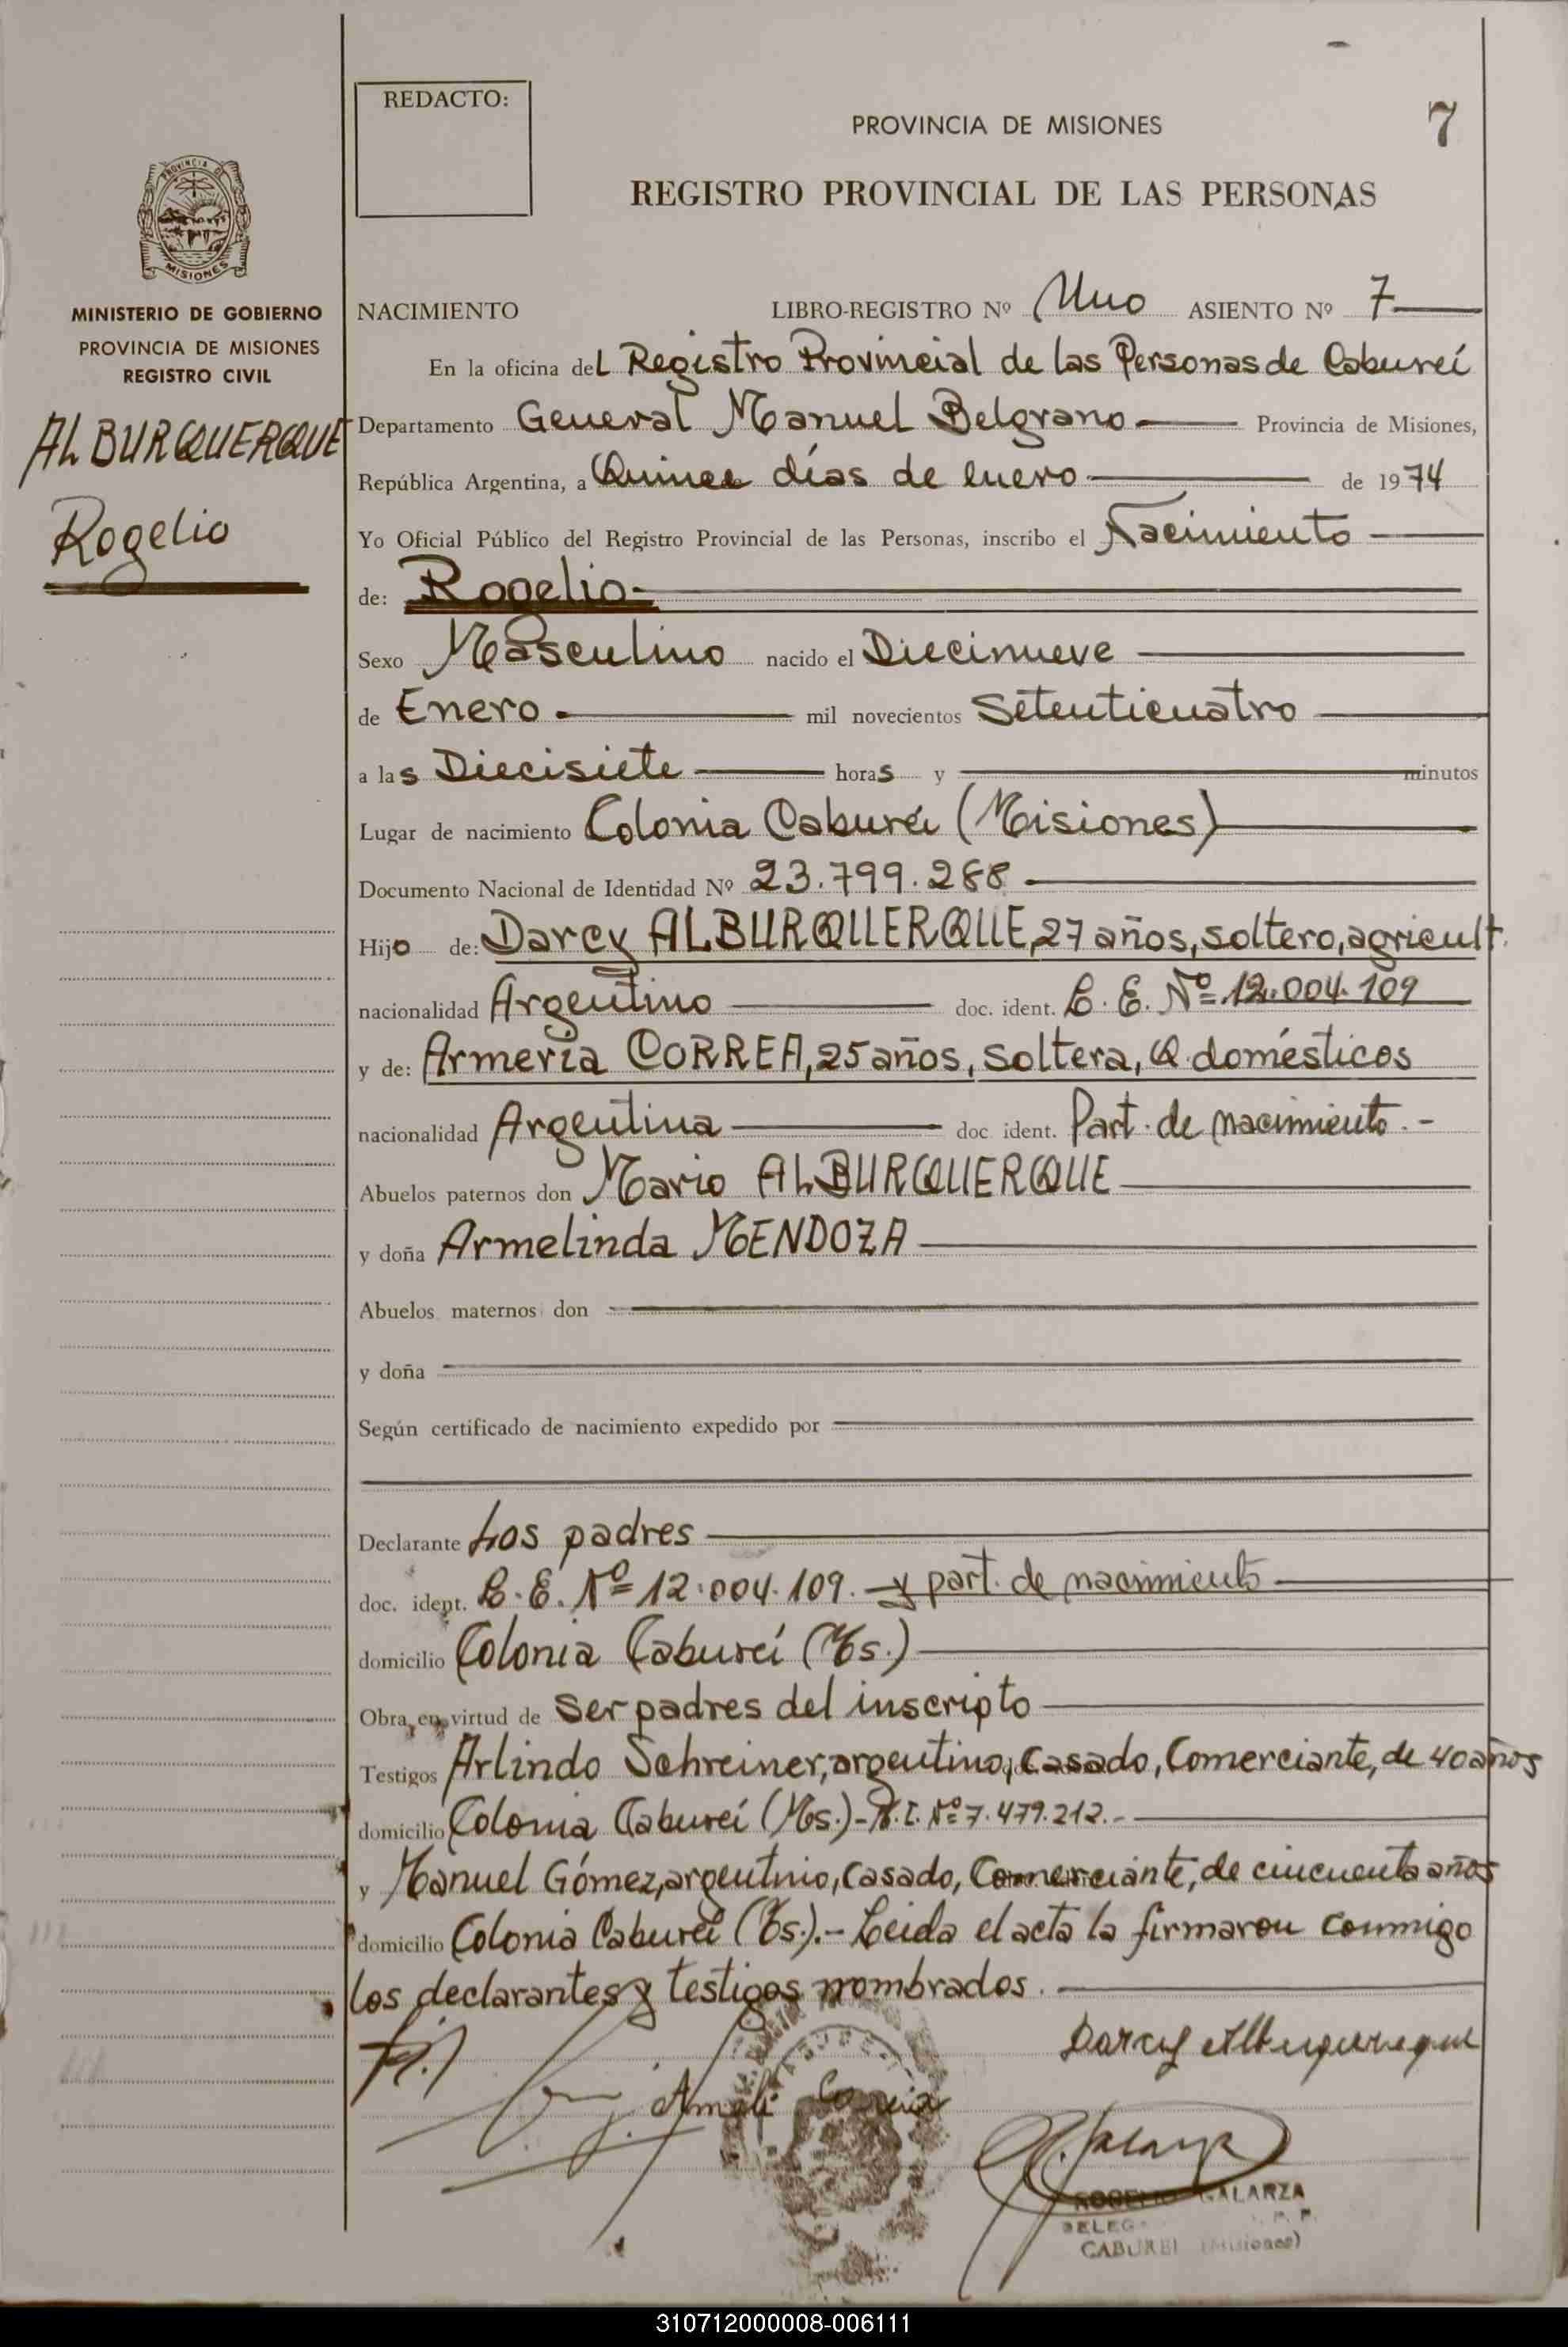 REDACTO:
PROVINCIA DE MISIONES
7
REGISTRO PROVINCIAL DE LAS PERSONAS
PROVINCIA DE
MISIONES
MINISTERIO DE GOBIERNO
PROVINCIA DE MISIONES
REGISTRO CIVIL
ALBURQUERQUE
Rogelio
NACIMIENTO LIBRO-REGISTRO Nº Uno ASIENTO Nº 7
En la oficina del Registro Provincial de las Personas de Caburei
Departamento General Manuel Belgrano Provincia de Misiones,
República Argentina, a Quince días de enero de 1974
Yo Oficial Público del Registro Provincial de las Personas, inscribo el Nacimiento
de: Rogelio
Sexo Masculino nacido el Diecinueve
de Enero mil novecientos Setenticuatro
a las Diecisiete horas y minutos
Lugar de nacimiento Colonia Caburei (Misiones)
Documento Nacional de Identidad Nº 23.799.288
Hijo de: Darcy ALBURQUERQUE, 27 años, soltero, agricult.
nacionalidad Argentino doc. ident. L. E. Nº 12.004.109
y de: Armeria CORREA, 25 años, soltera, Q. domésticos
nacionalidad Argentina doc. ident. Part. de nacimiento.-
Abuelos paternos don Mario ALBURQUERQUE
y doña Armelinda MENDOZA
Abuelos maternos don
y doña
Según certificado de nacimiento expedido por
Declarante Los padres
doc. ident. L. E. Nº 12.004.109. y part. de nacimiento
domicilio Colonia Cabureí (Ms.)
Obra en virtud de ser padres del inscripto
Testigos Arlindo Schreiner, argentino, Casado, Comerciante, de 40 años
domicilio Colonia Cabureí (Ms.)- M.I. Nº 7.479.212.-
y Manuel Gómez, argentino, Casado, Comerciante, de cincuenta años
domicilio Colonia Caburei (Ms.).- Leida el acta la firmaron conmigo
los declarantes y testigos nombrados.
Darcy Alburquerque
ROGELIO GALARZA
CABUREI (Misiones)
310712000008-006111